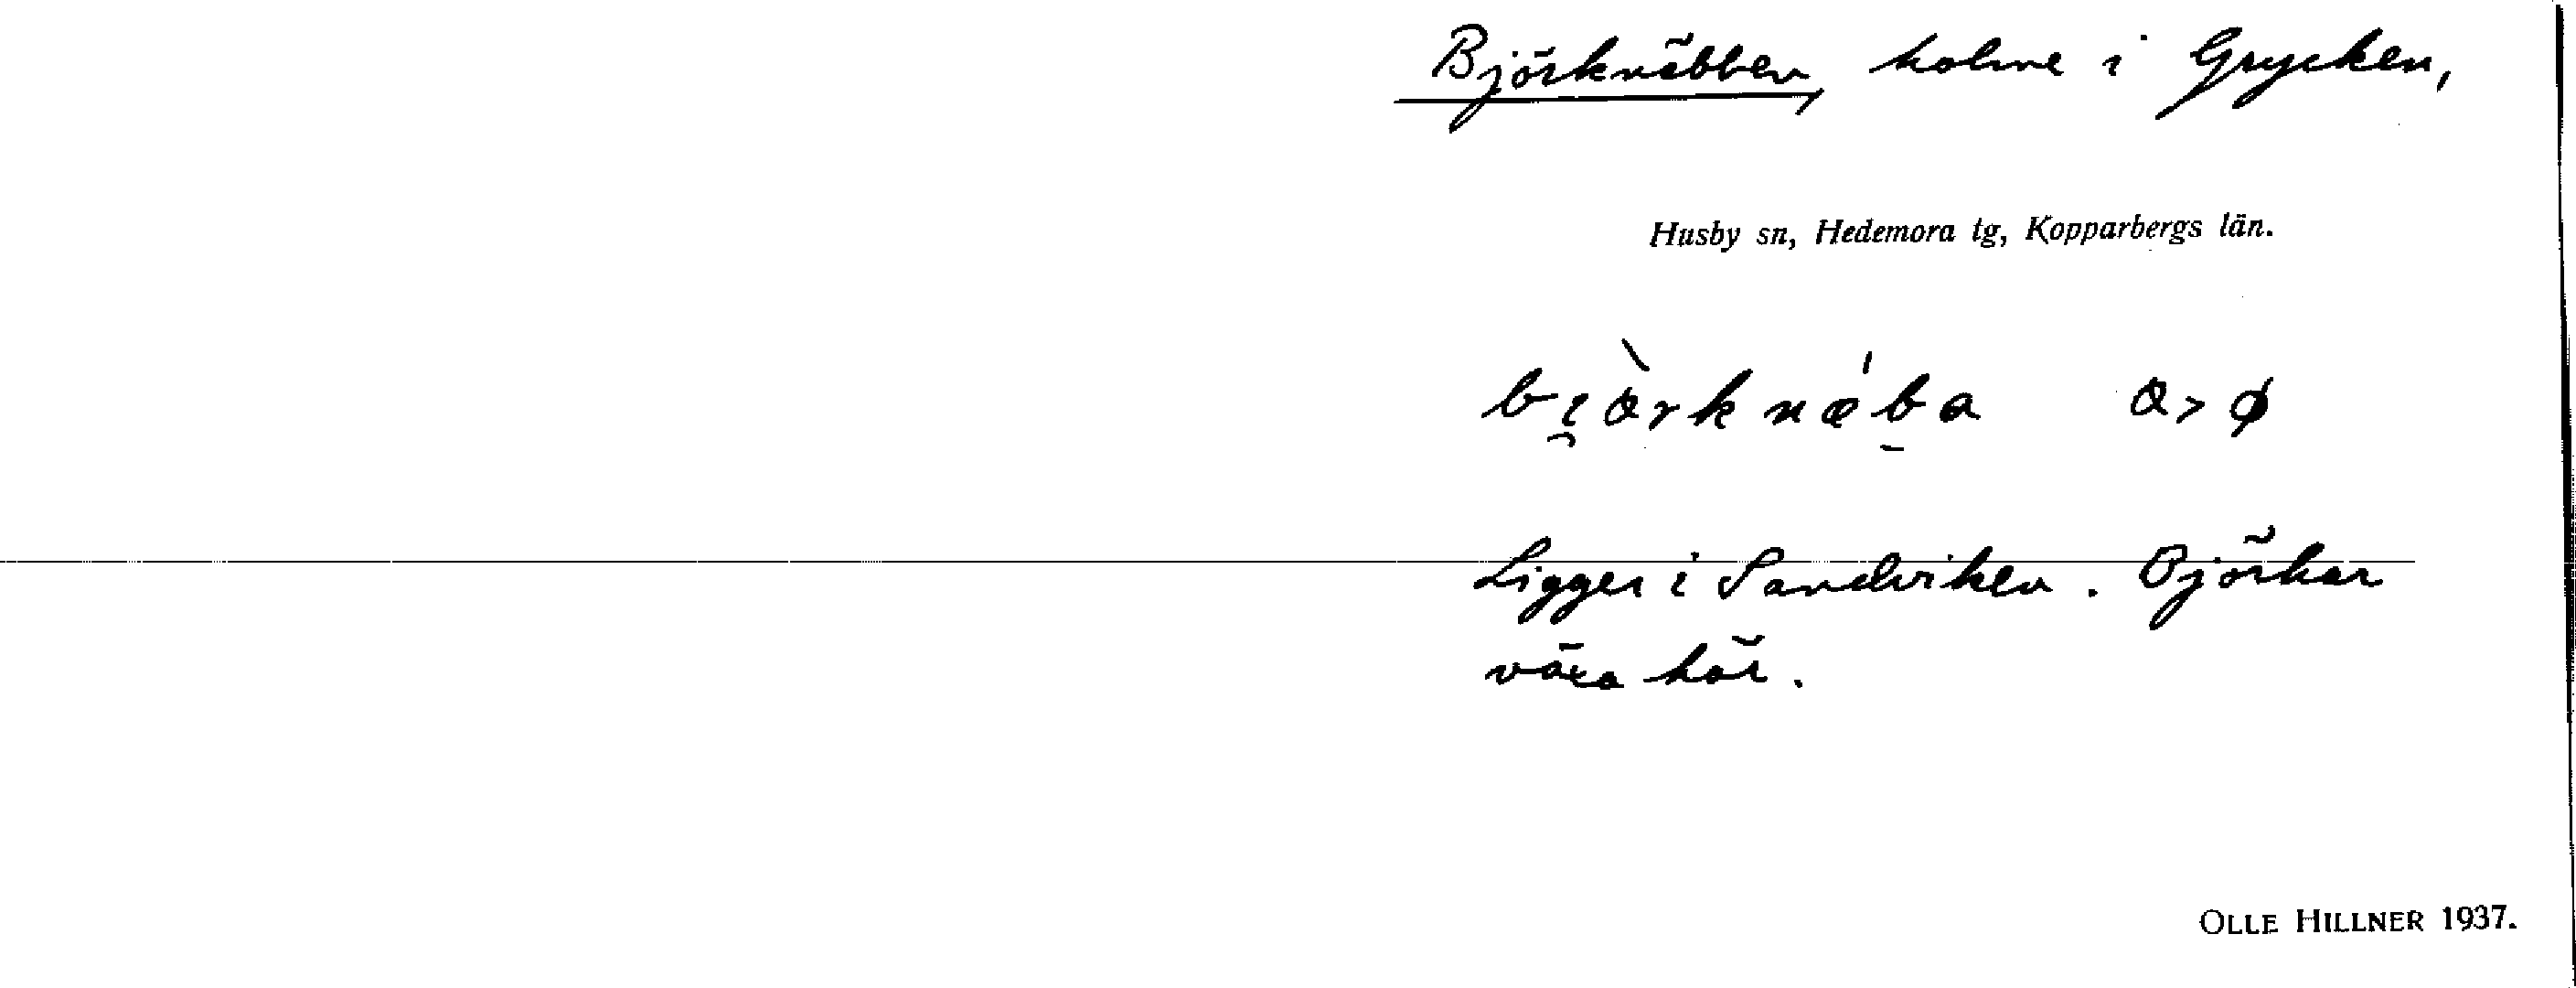 Björknäbben, holme i Grycken,
Husby sn, Hedemora tg, Kopparbergs län.
Ligger i Sandviken. Björkar
växa här.
OLLE HILLNER 1937.